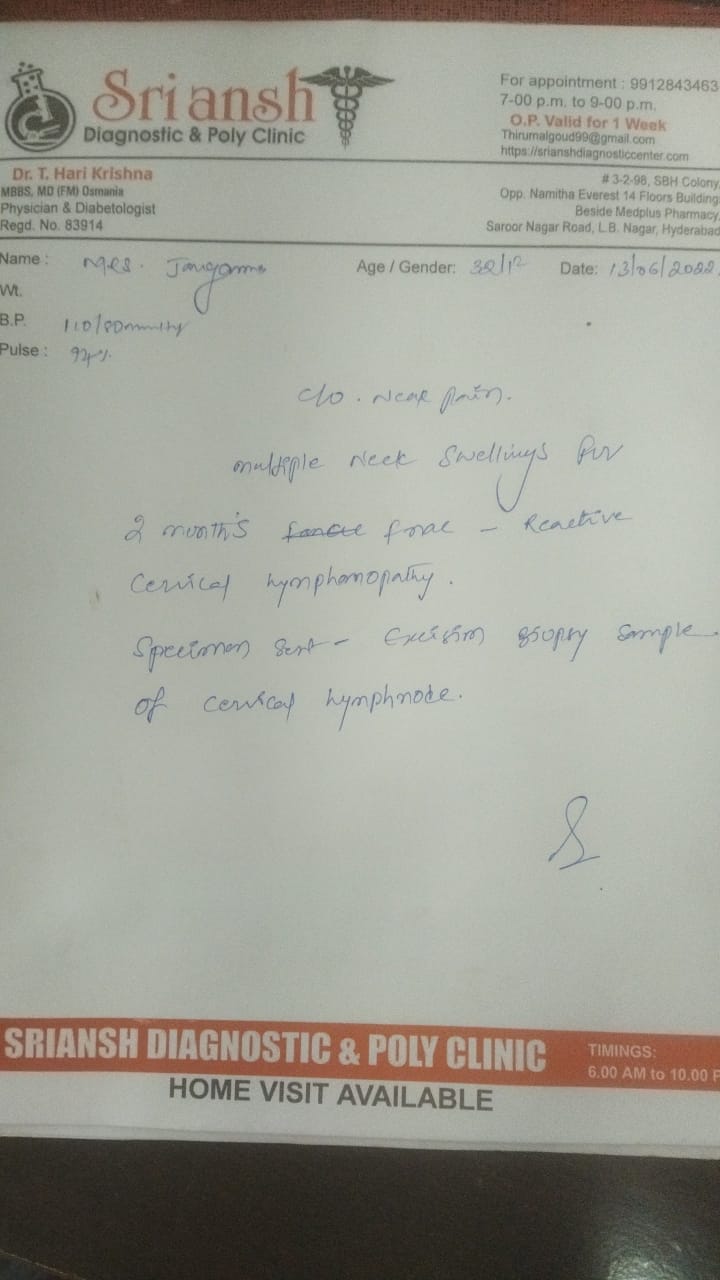 Sriansh
Diagnostic & Poly Clinic
For appointment : 9912843463
7-00 p.m. to 9-00 p.m.
O.P. Valid for 1 Week
Thirumalgoud99@gmail.com
https://srianshdiagnosticcenter.com
Dr. T. Hari Krishna
MBBS, MD (FM) Osmania
Physician & Diabetologist
Regd. No. 83914
# 3-2-98, SBH Colony,
Opp. Namitha Everest 14 Floors Building
Beside Medplus Pharmacy,
Saroor Nagar Road, L.B. Nagar, Hyderabad
Name : Mrs. Age / Gender: Date: 13/06/2022
Wt.
B.P. 110/80mmhg
Pulse :
c/o. Neck pain.
multiple neck swellings for
2 month's fnac - Reactive
Cervical lymphonopathy.
Specimen sent - Excision Biopsy sample
of cervical lymphnode.
SRIANSH DIAGNOSTIC & POLY CLINIC
TIMINGS:
6.00 AM to 10.00 P
HOME VISIT AVAILABLE